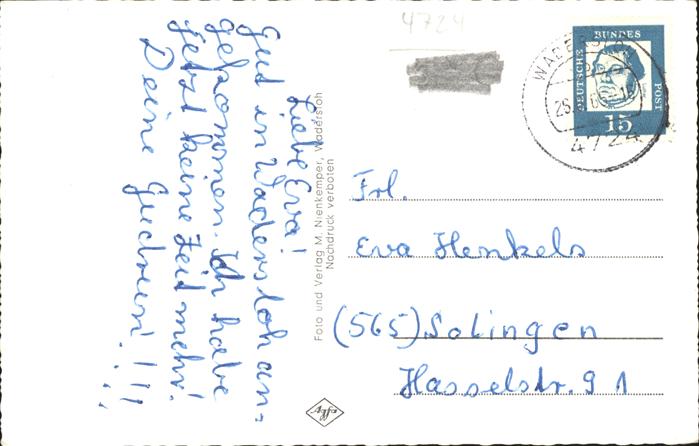 4724
Liebe Eva!
Gut in Wadersloh an-
gekommen. Ich habe
jetzt keine Zeit mehr!
Deine Gudrun!!!!
Foto und Verlag M. Nienkemper, Wadersloh
Nachdruck verboten
DEUTSCHE BUNDES POST
15
WADERSLOH
4724
Frl.
Eva Henkels
(565) Solingen
Hasselstr. 91
Agfa